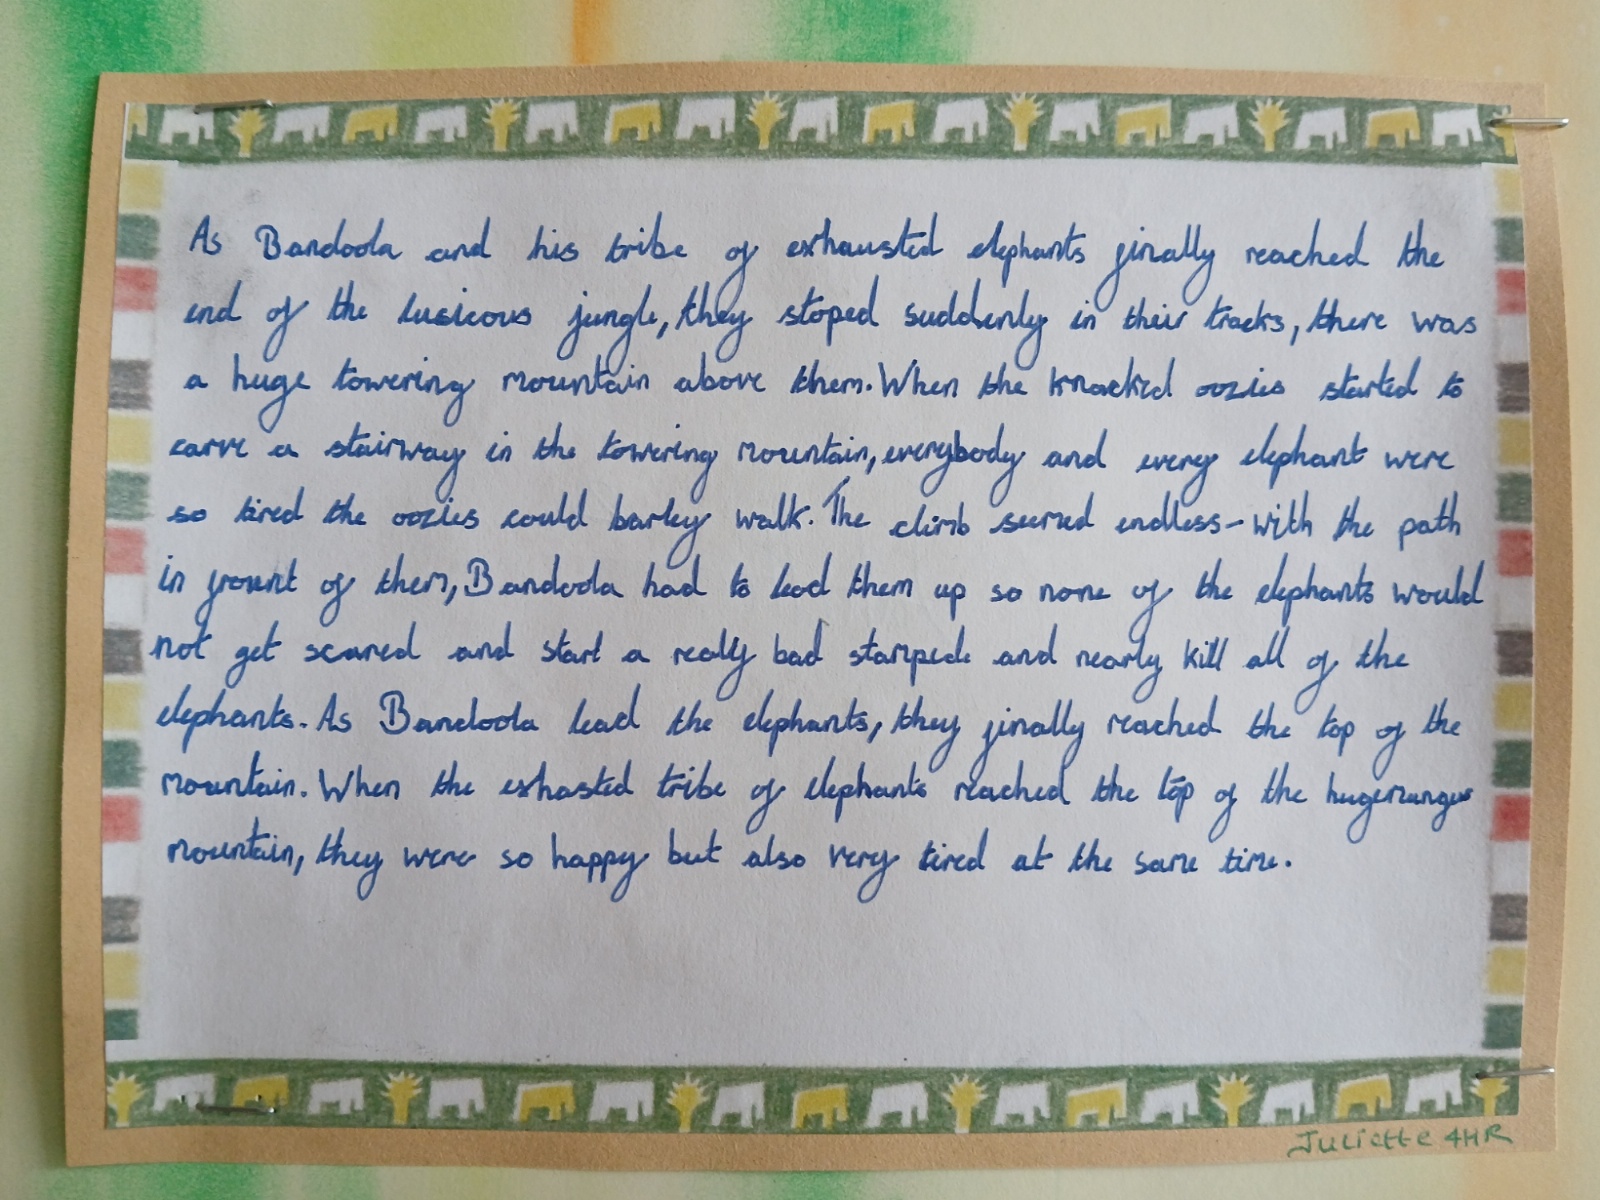 As Bandoola and his tribe of exhausted elephants finally reached the
end of the lusicous jungle, they stoped suddenly in their tracks, there was
a huge towering mountain above them. When the knacked oozies started to
carve a stairway in the towering mountain, everybody and every elephant were
so tired the oozies could barley walk. The climb seemed endless - with the path
in frount of them, Bandoola had to lead them up so none of the elephants would
not get scared and start a really bad stampede and nearly kill all of the
elephants. As Bandoola lead the elephants, they finally reached the top of the
mountain. When the exhasted tribe of elephants reached the top of the hugemungus
mountain, they were so happy but also very tired at the same time.
Juliette 4HR